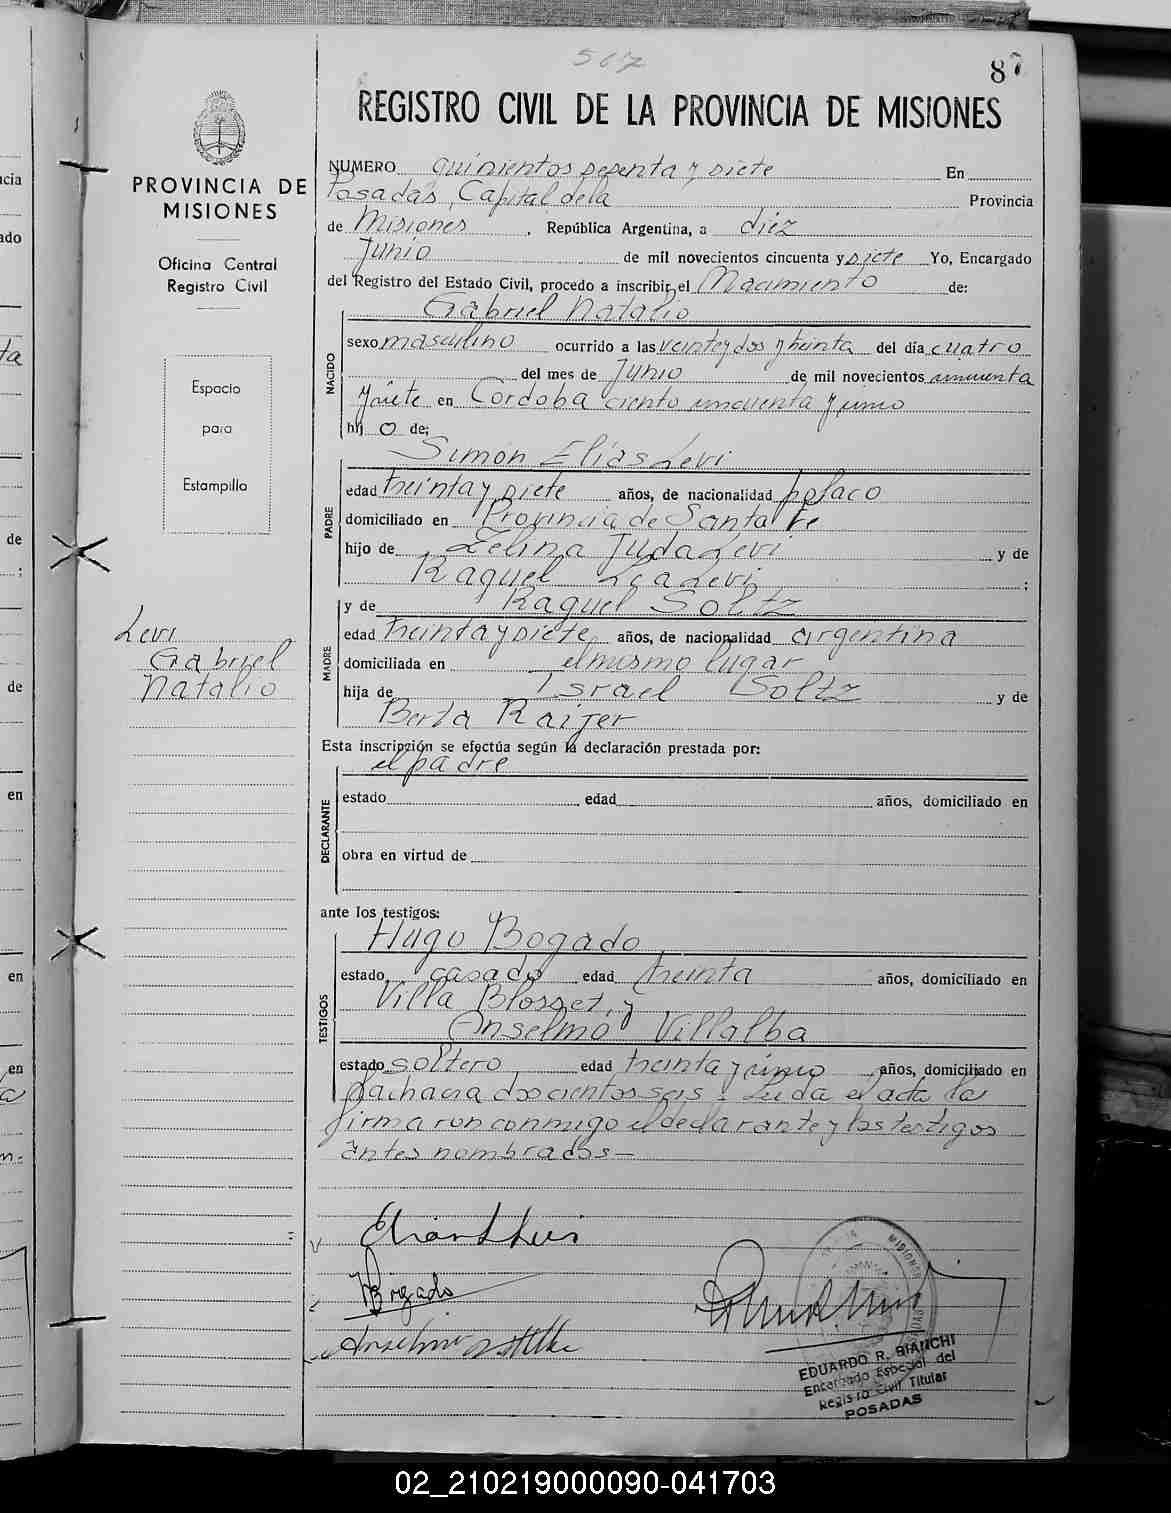 567
87
REGISTRO CIVIL DE LA PROVINCIA DE MISIONES
PROVINCIA DE
MISIONES
Oficina Central
Registro Civil
Espacio
para
Estampilla
Levi
Gabriel
Natalio
NUMERO quinientos sesenta y siete En
Posadas, Capital de la Provincia
de Misiones, República Argentina, a diez
Junio de mil novecientos cincuenta y siete Yo, Encargado
del Registro del Estado Civil, procedo a inscribir el Nacimiento de:
Gabriel Natalio
NACIDO
sexo masculino ocurrido a las veinte y dos y treinta del día cuatro
del mes de Junio de mil novecientos cincuenta
y siete en Córdoba ciento cincuenta y uno
hij o de:
Simón Elias Levi
PADRE
edad treinta y siete años, de nacionalidad polaco
domiciliado en Provincia de Santa Fe
hijo de Zelina Juda Levi y de
Raquel Lea Levi ;
y de Raquel Soltz
MADRE
edad treinta y siete años, de nacionalidad argentina
domiciliada en el mismo lugar
hija de Israel Soltz y de
Berta Raijer
Esta inscripción se efectúa según la declaración prestada por:
el padre
DECLARANTE
estado edad años, domiciliado en
obra en virtud de
ante los testigos:
Hugo Bogado
TESTIGOS
estado casado edad treinta años, domiciliado en
Villa Blosset, y
Anselmo Villalba
estado soltero edad treinta y uno años, domiciliado en
Lachacra doscientos seis - Leida el acta la
firmaron conmigo el declarante y los testigos
antes nombrados—
Bogado
Anselmo
MISIONES
POSADAS
EDUARDO R. BIANCHI
Encargado Especial del
Registro Civil Titular
POSADAS
cia
ado
ta
de
;
de
en
en
en
a
n.
02_210219000090-041703